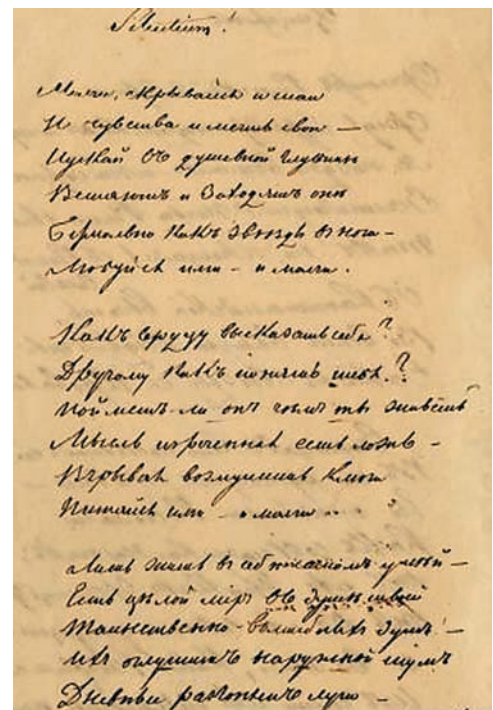 Silentium!
Молчи, скрывайся и таи
И чувства и мечты свои —
Пускай въ душевной глубинѣ
Встаютъ и заходятъ онѣ
Безмолвно какъ звѣзды въ ночи —
Любуйся ими — и молчи.
Какъ сердцу высказать себя?
Другому какъ понять тебя?
Пойметъ-ли онъ чѣмъ ты живешь
Мысль изреченная есть ложь —
Взрывая возмутишь ключи
Питайся ими — и молчи ..
Лишь жить въ себѣ самомъ умѣй —
Есть цѣлой міръ въ душѣ твоей
Таинственно-волшебныхъ думъ —
Ихъ оглушитъ наружной шумъ
Дневные разгонятъ лучи —